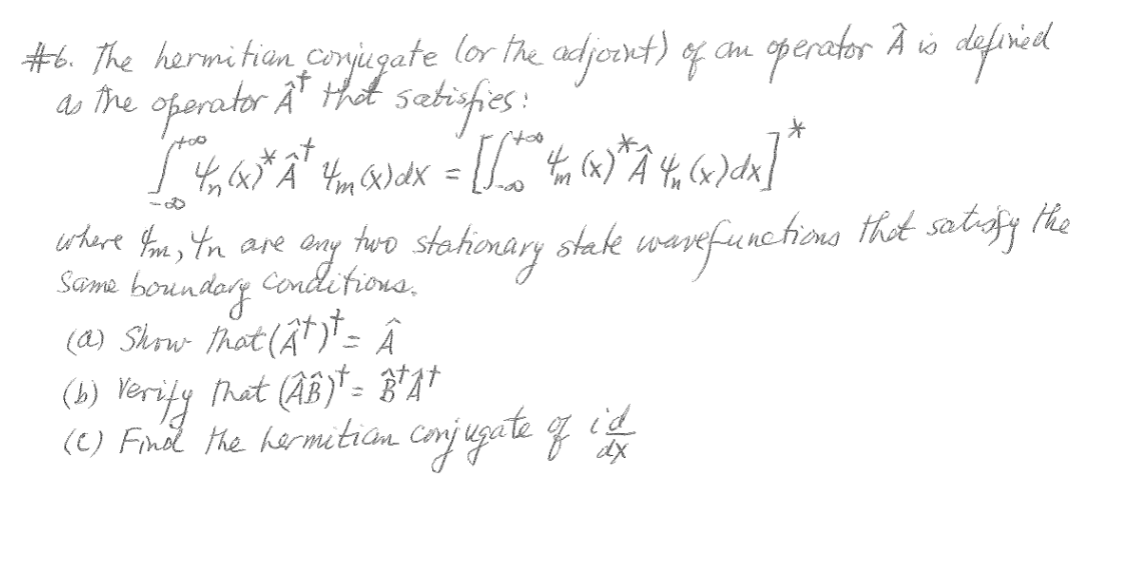 #6. The hermitian conjugate (or the adjoint) of an operator Â is defined
as the operator Â† that satisfies:
∫_{-∞}^{+∞} ψₙ(x)* Â† ψₘ(x)dx = [∫_{-∞}^{+∞} ψₘ(x)* Â ψₙ(x)dx]*
where ψₘ, ψₙ are any two stationary state wavefunctions that satisfy the
same boundary conditions.
(a) Show that (Â†)† = Â
(b) Verify that (ÂB̂)† = B̂†Â†
(c) Find the hermitian conjugate of i d/dx